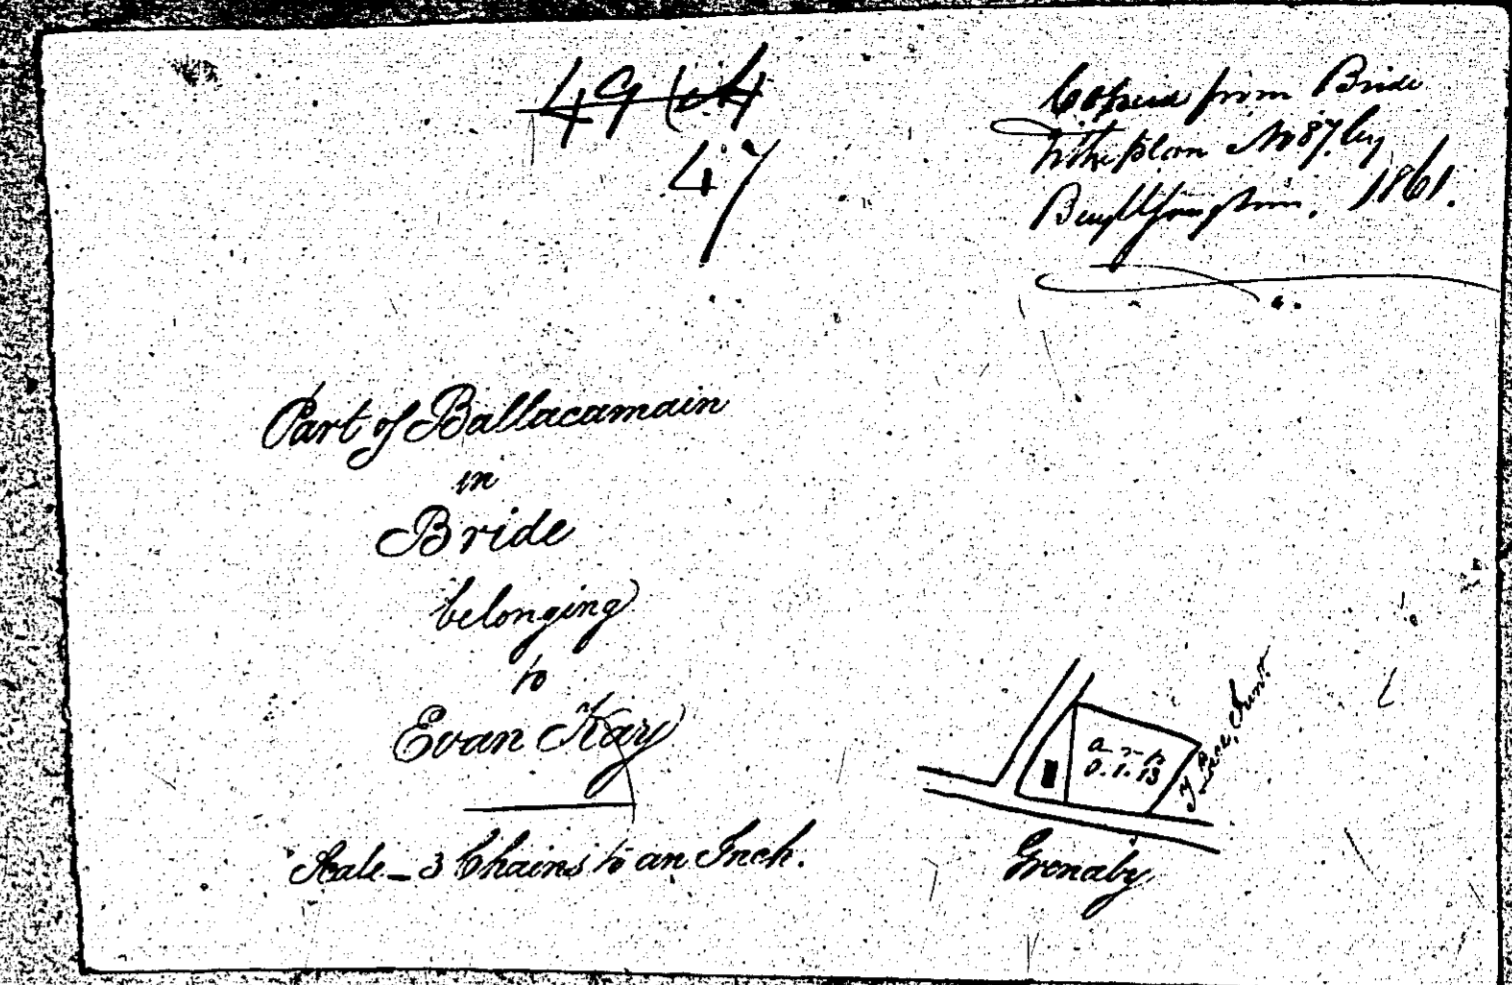 47
Copied from Bride
Tithe plan No 87 by
1861.
Part of Ballacamain
in
Bride
belonging
to
Evan Kay
Scale – 3 Chains to an Inch.
a r p
0. 1. 13
Junr.
Gronaby